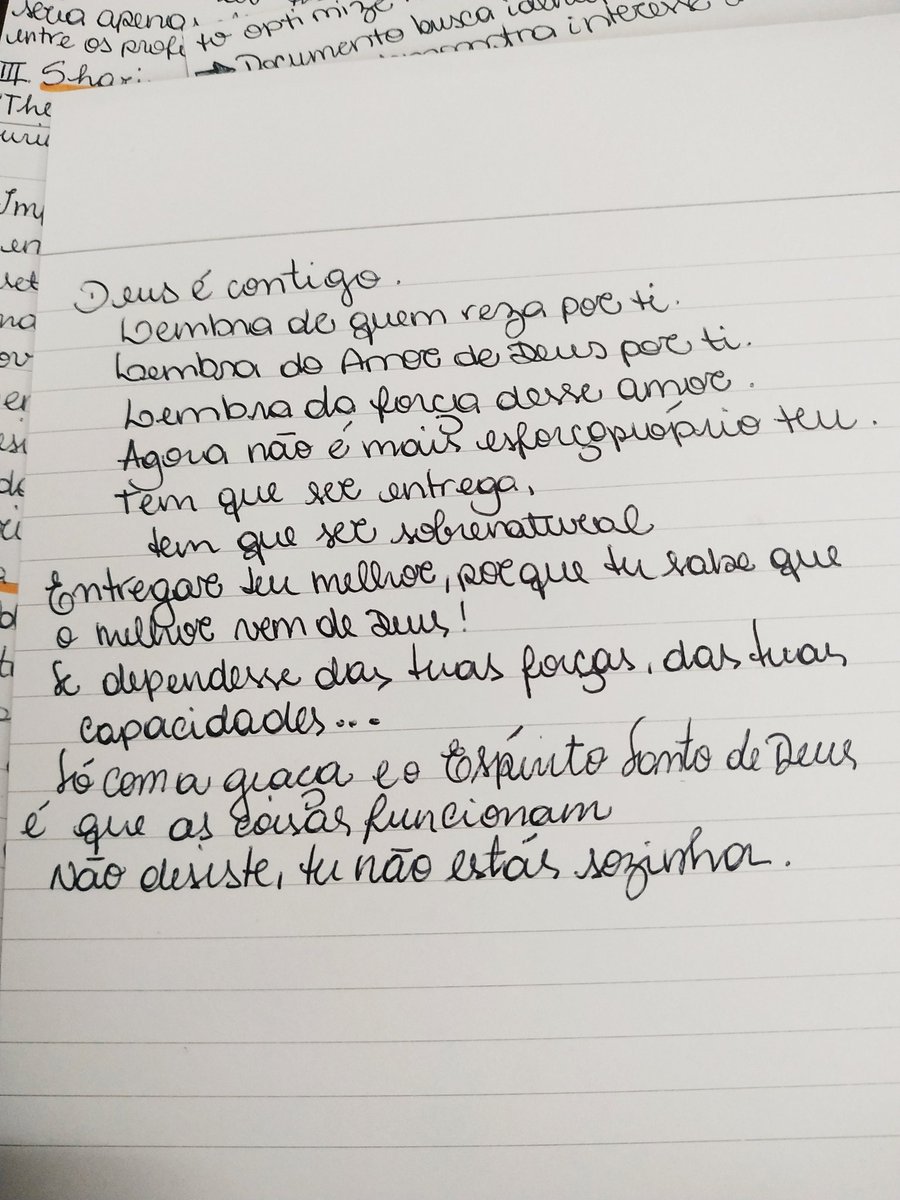 seria apena
entre os profi
to optimize
→ Documento busca iden
demonstra interesse
III. Shari
"The
uni
Im
en
set
na
ov
er
esi
de
Deus é contigo.
Lembra de quem reza por ti.
Lembra do Amor de Deus por ti.
Lembra da força desse amor.
Agora não é mais esforço próprio teu.
Tem que ser entrega,
tem que ser sobrenatural
Entregar teu melhor, porque tu sabe que
o melhor vem de Deus!
Se dependesse das tuas forças, das tuas
capacidades...
Só com a graça e o Espírito Santo de Deus
é que as coisas funcionam
Não desiste, tu não estás sozinha.